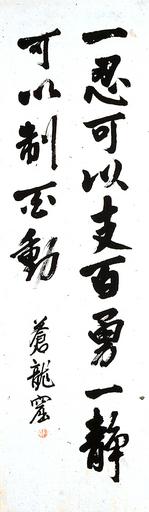 一忍可以支百勇一静
可以制百動
蒼龍窟